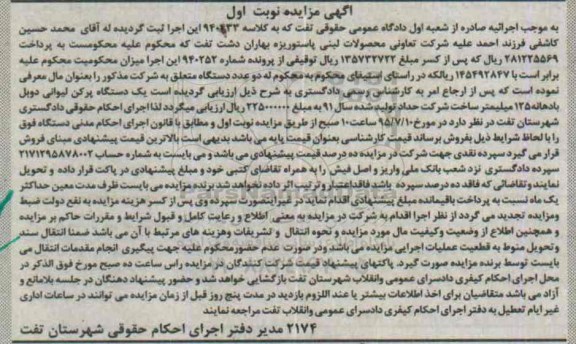 آگهی مزایده نوبت اول
به موجب اجرائیه صادره از شعبه اول دادگاه عمومی حقوقی تفت که به کلاسه ۹۴۰۴۳۳ این اجرا ثبت گردیده له آقای محمد حسین
کاشفی فرزند احمد علیه شرکت تعاونی محصولات لبنی پاستوریزه بهاران دشت تفت که محکوم علیه محکومست به پرداخت
۲۸۱۲۲۵۵۶۹ ریال که پس از کسر مبلغ ۱۳۵۷۳۲۷۲۲ ریال توقیفی از پرونده شماره ۹۴۰۲۵۲ این اجرا میزان محکومیت محکوم علیه
برابر است با ۱۴۵۴۹۲۸۴۷ ریالکه در راستای استیفای محکوم به محکوم له دو عدد دستگاه متعلق به شرکت مذکور را بعنوان مال معرفی
نموده است که پس از ارجاع امر به کارشناس رسمی دادگستری به شرح ذیل ارزیابی گردیده است یک دستگاه پرکن لیوانی دوبل
بادهانه۱۲۵ میلیمتر ساخت شرکت حداد تولید شده سال ۹۱ به مبلغ ۲۲۵۰۰۰۰۰۰ ریال ارزیابی میگردد لذا اجرای احکام حقوقی دادگستری
شهرستان تفت در نظر دارد در مورخ ۹۵/۷/۱۰ ساعت ۱۰ صبح از طریق مزایده نوبت اول و مطابق با قانون اجرای احکام مدنی دستگاه فوق
را با لحاظ شرایط ذیل بفروش برساند قیمت کارشناسی بعنوان قیمت پایه می باشد بدیهی است بالاترین قیمت پیشنهادی مبنای فروش
قرار می گیرد سپرده نقدی جهت شرکت در مزایده ده درصد قیمت پیشنهادی می باشد و می بایست به شماره حساب ۲۱۷۱۲۹۵۸۷۸۰۰۲
سپرده دادگستری نزد شعب بانک ملی واریز و اصل فیش را به همراه تقاضای کتبی خود و مبلغ پیشنهادی در پاکت قرار داده و تحویل
نمایند و تقاضائی که فاقد ده درصد سپرده باشد فاقد اعتبار و ترتیب اثر داده نخواهد شد برنده مزایده می بایست ظرف مدت معین حداکثر
یک ماه نسبت به پرداخت باقیمانده مبلغ پیشنهادی اقدام نماید در غیر اینصورت سپرده وی پس از کسر هزینه مزایده به نفع دولت ضبط
ومزایده تجدید می گردد از نظر اجرا اقدام به شرکت در مزایده به معنی اطلاع و رعایت کامل و قبول شرایط و مقررات حاکم بر مزایده
و همچنین اطلاع از وضعیت وکیفیت مال مورد مزایده و نحوه انتقال و تشریفات وهزینه های مرتبط با آن می باشد ضمنا انتقال سند
وتحویل منوط به قطعیت عملیات اجرایی مزایده می باشد ودر صورت عدم حضور محکوم علیه جهت پیگیری انجام مقدمات انتقال می
بایست توسط برنده مزایده صورت گیرد. پاکتهای پیشنهاد قیمت شرکت کنندگان در مزایده راس ساعت ده صبح مورخ فوق الذکر در
محل اجرای احکام کیفری دادسرای عمومی وانقلاب شهرستان تفت بازگشایی خواهد شد و حضور پیشنهاد دهندگان در جلسه بلامانع و
آزاد می باشد متقاضیان برای اخذ اطلاعات بیشتر یا عند اللزوم بازدید در مدت پنج روز قبل از زمان مزایده می توانند در ساعات اداری
غیر ایام تعطیل به دفتر اجرای احکام کیفری دادسرای عمومی وانقلاب تفت مراجعه نمایند
۲۱۷۴ مدیر دفتر اجرای احکام حقوقی شهرستان تفت